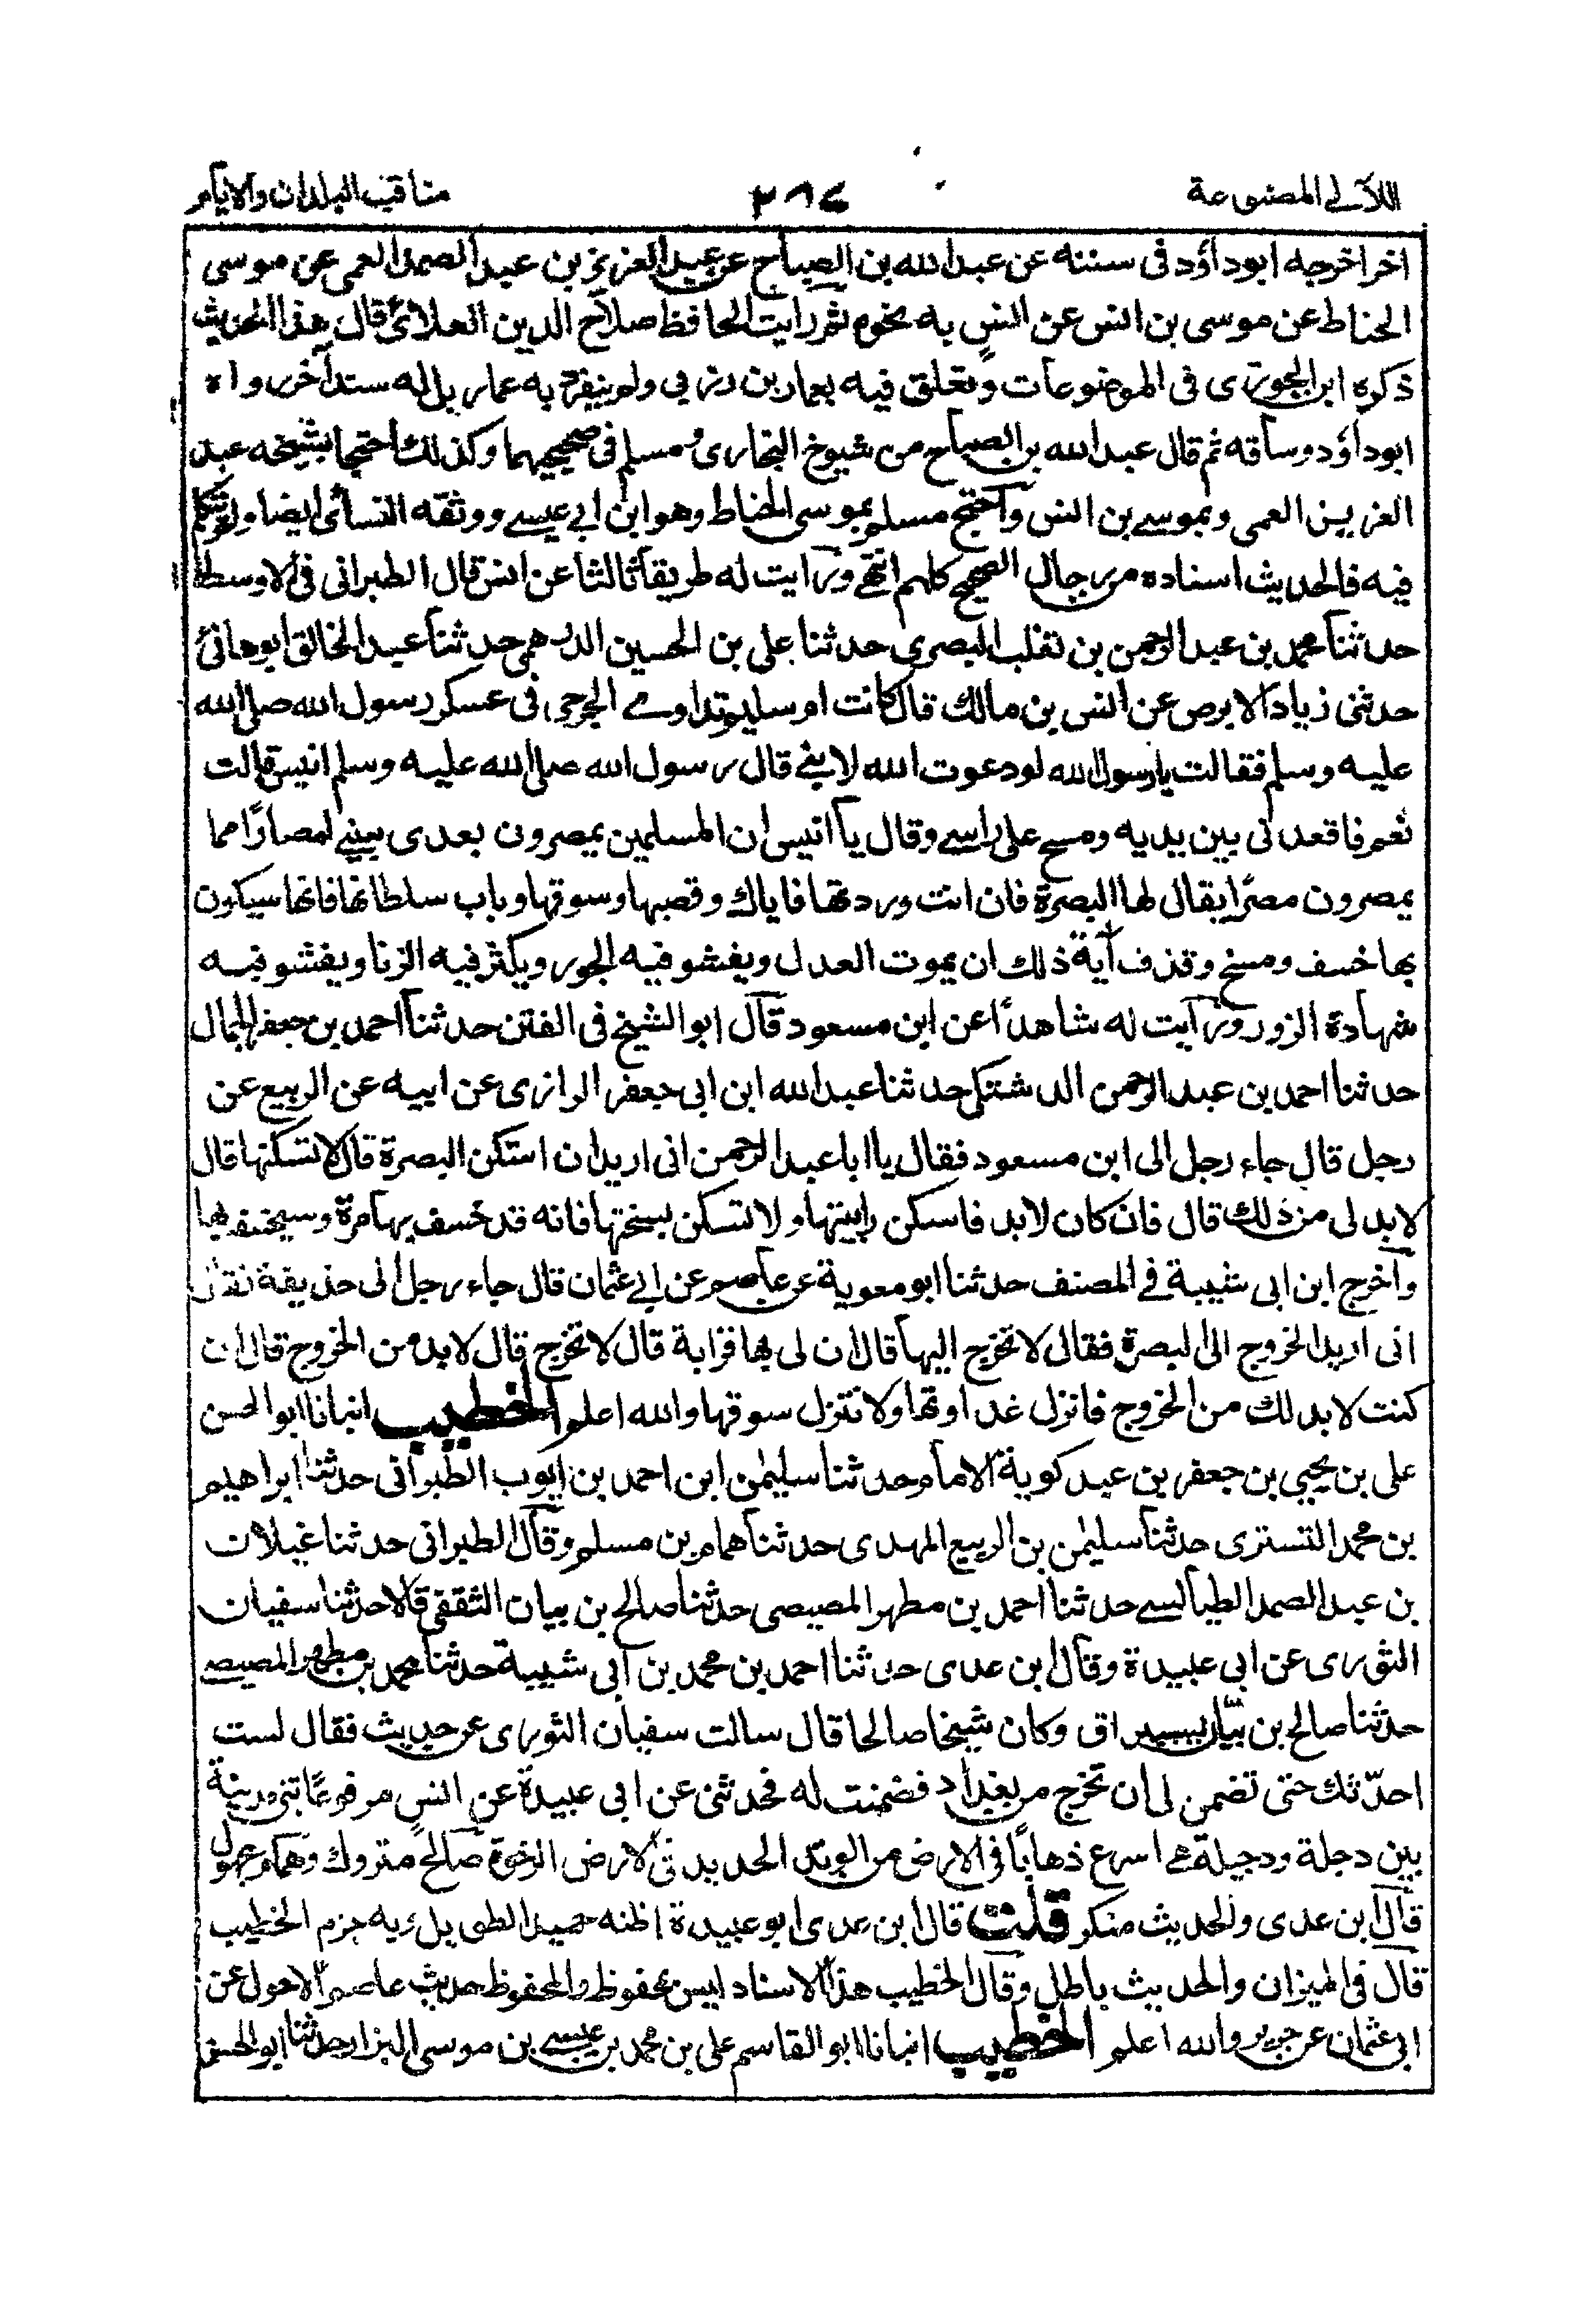 اللآلے المصنوعة ٢٨٤ مناقب البلدان والايام
اخر اخرجه ابوداؤد فى سننه عن عبدالله بن الصباح عن عبدالعزيز بن عبدالصمد العمى عن موسى
الحناط عن موسى بن انس عن انس به نحوه ثم رايت الحافظ صلاح الدين العلائى قال هذا الحديث
ذكره ابن الجوزى فى الموضوعات وتعلق فيه بعمار بن زربي ولم ينفرد به عمار بل له سند آخر رواه
ابوداؤد وساقه ثم قال عبدالله بن الصباح من شيوخ البخارى ومسلم فى صحيحيهما وكذلك احتجا بشيخه عبد
العزيز العمى وبموسى بن انس واحتج مسلم بموسى الحناط وهو ابن ابي عيسے ووثقه النسائى ايضا ولم يتكلم
فيه فالحديث اسناده من رجال الصحيح كلهم انتهے ورايت له طريقا ثالثا عن انس قال الطبرانى فى الاوسط
حدثنا محمد بن عبدالرحمن بن تغلب البصرى حدثنا على بن الحسين الدرهمى حدثنا عبدالخالق ابوهانئ
حدثنى زياد الابرص عن انس بن مالك قال كانت ام سليم تداوے الجرحى فى عسكر رسول الله صلى الله
عليه وسلم فقالت يا رسول الله لو دعوت الله لابنے قال رسول الله صلى الله عليه وسلم انيس قالت
نعم فاقعدنى بين يديه ومسح على راسے وقال يا انيس ان المسلمين يمصرون بعدى يبنے امصارًا مما
يمصرون مصرًا يقال لها البصرة فان انت وردتها فاياك وقصبها وسوقها وباب سلطانها فانها سيكون
بها خسف ومسخ وقذف آية ذلك ان يموت العدل ويفشو فيه الجور ويكثر فيه الزنا ويفشو فيه
شهادة الزور ورايت له شاهدًا عن ابن مسعود قال ابو الشيخ فى الفتن حدثنا احمد بن جعفر الجمال
حدثنا احمد بن عبدالرحمن الدشتكى حدثنا عبدالله ابن ابى جعفر الرازى عن ابيه عن الربيع عن
رجل قال جاء رجل الى ابن مسعود فقال يا ابا عبدالرحمن انى اريد ان استكن البصرة قال لا تسكنها قال
لابد لى من ذلك قال فان كان لابد فاسكن رابيتها ولا تسكن بسبختها فانه قد خسف بها مرة وسيخسف بها
واخرج ابن ابى شيبة فے المصنف حدثنا ابو معوية عن عاصم عن ابے عثمان قال جاء رجل الى حذيفة فقال
انى اريد الخروج الى البصرة فقال لا تخرج اليها قال ان لى بها قرابة قال لا تخرج قال لابد من الخروج قال ان
كنت لابد لك من الخروج فانزل غداوتها ولا تنزل سوقها والله اعلم الخطيب انبانا ابو الحسن
على بن يحيى بن جعفر بن عبد كوية الامام حدثنا سليمٰن ابن احمد بن ايوب الطبرانى حدثنا ابراهيم
بن محمد التسترى حدثنا سليمٰن بن الربيع المهدى حدثنا همام بن مسلم وقال الطبرانى حدثنا غيلان
بن عبدالصمد الطيالسے حدثنا احمد بن مطهر المصيصى حدثنا صالح بن بيان الثقفى قالا حدثنا سفيان
الثورى عن ابى عبيدة وقال ابن عدى حدثنا احمد بن محمد بن ابى شيبة حدثنا محمد بن مطهر المصيصے
حدثنا صالح بن بيان بسيراق وكان شيخا صالحا قال سالت سفيان الثورى عن حديث فقال لست
احدّثك حتى تضمن لى ان تخرج من بغداد فضمنت له فحدثنى عن ابى عبيدة عن انس مرفوعًا تبنى مدينة
بين دجلة ودجيلة هے اسرع ذهابًا فى الارض من الوتد الحديد فى الارض الرخوة صالح متروك وهمام مجهول
قال ابن عدى والحديث منكر قلت قال ابن عدى ابو عبيدة اظنه حميد الطويل وبه جزم الخطيب
قال فى الميزان والحديث باطل وقال الخطيب هذا الاسناد ليس بمحفوظ والمحفوظ حديث عاصم الاحول عن
ابى عثمان عن جرير والله اعلم الخطيب انبانا ابو القاسم على بن محمد بن عيسے بن موسى البزار حدثنا ابو الحسن